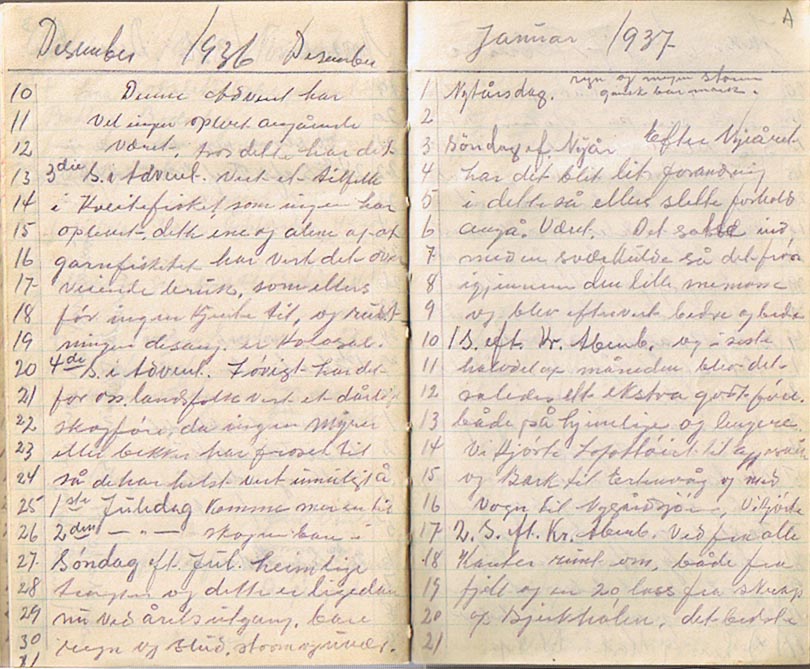 Desember 1936 Desember
10 Denne Advent har
11 vel ingen oplevet angående
12 været, tros dette har det
13 3die S. i Advent. vert et tilfelle
14 i Kveitefisket som ingen har
15 oplevet dette ene og alene at
16 garnfisket har vert det over
17 veiende bruk, som ellers
18 før ingen kjente til, og rust
19 ningen desang. er Kolosal.
20 4de S. i Advent. Løvigt har det
21 for os landfolk vert et dårlig
22 skogføre, da ingen myrer
23 eller bekker har froset til
24 så de har helst vert umuligt å
25 1ste Juledag komme mer en til
26 2den — " — skogen bare i
27 Søndag eft. Jul. heimlige
28 og dette er ligedan
29 nu ved årets utgang. bare
30 regn og slud, storm og uvær.
31
A
Januar 1937
1 Nytårsdag. regn og megen storm
ganske bar mark.
2
3 Søndag ef. Nyår Efter Nyåret
4 har det blit lit forandring
5 i dette så ellers slette forhold
6 angå. Været. Det satte ind
7 med en svær kulde så det frøs
8 igjennem den lille snemasse
9 og blev eftervert bedre og bedre
10 1 S. eft. Kr. Åbenb. og i siste
11 halvdel af måneden blev det
12 således ett ekstra godt føre.
13 både på hjemlige og lengere.
14 Vi kjørte til
15 og Bark til og med
16 vogn til Vi kjørte
17 2. S. eft. Kr. Åbenb. Ved fra alle
18 Kanter runt om, både fra
19 fjell og en 20 lass fra
20 det bedste
21